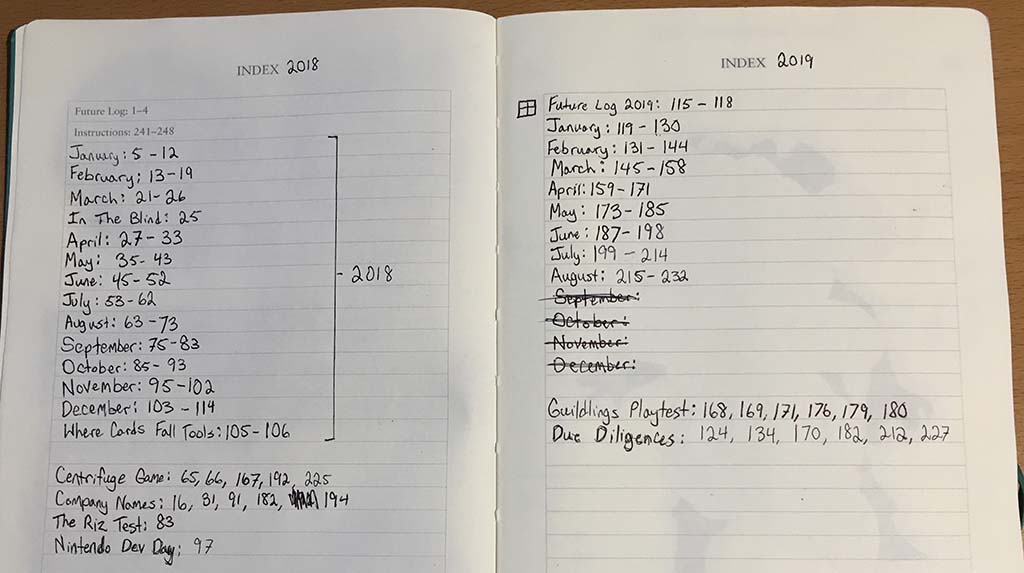 INDEX 2018
Future Log: 1–4
Instructions: 241–248
January: 5 - 12
February: 13 - 19
March: 21 - 26
In The Blind: 25
April: 27 - 33
May: 35 - 43
June: 45 - 52
July: 53 - 62
August: 63 - 73
September: 75 - 83
October: 85 - 93
November: 95 - 102
December: 103 - 114
Where Cards Fall Tools: 105 - 106
- 2018
Centrifuge Game: 65, 66, 167, 192, 225
Company Names: 16, 31, 91, 182, 194
The Riz Test: 83
Nintendo Dev Day: 97
INDEX 2019
Future Log 2019: 115 - 118
January: 119 - 130
February: 131 - 144
March: 145 - 158
April: 159 - 171
May: 173 - 185
June: 187 - 198
July: 199 - 214
August: 215 - 232
September:
October:
November:
December:
Guildlings Playtest: 168, 169, 171, 176, 179, 180
Due Diligences: 124, 134, 170, 182, 212, 227